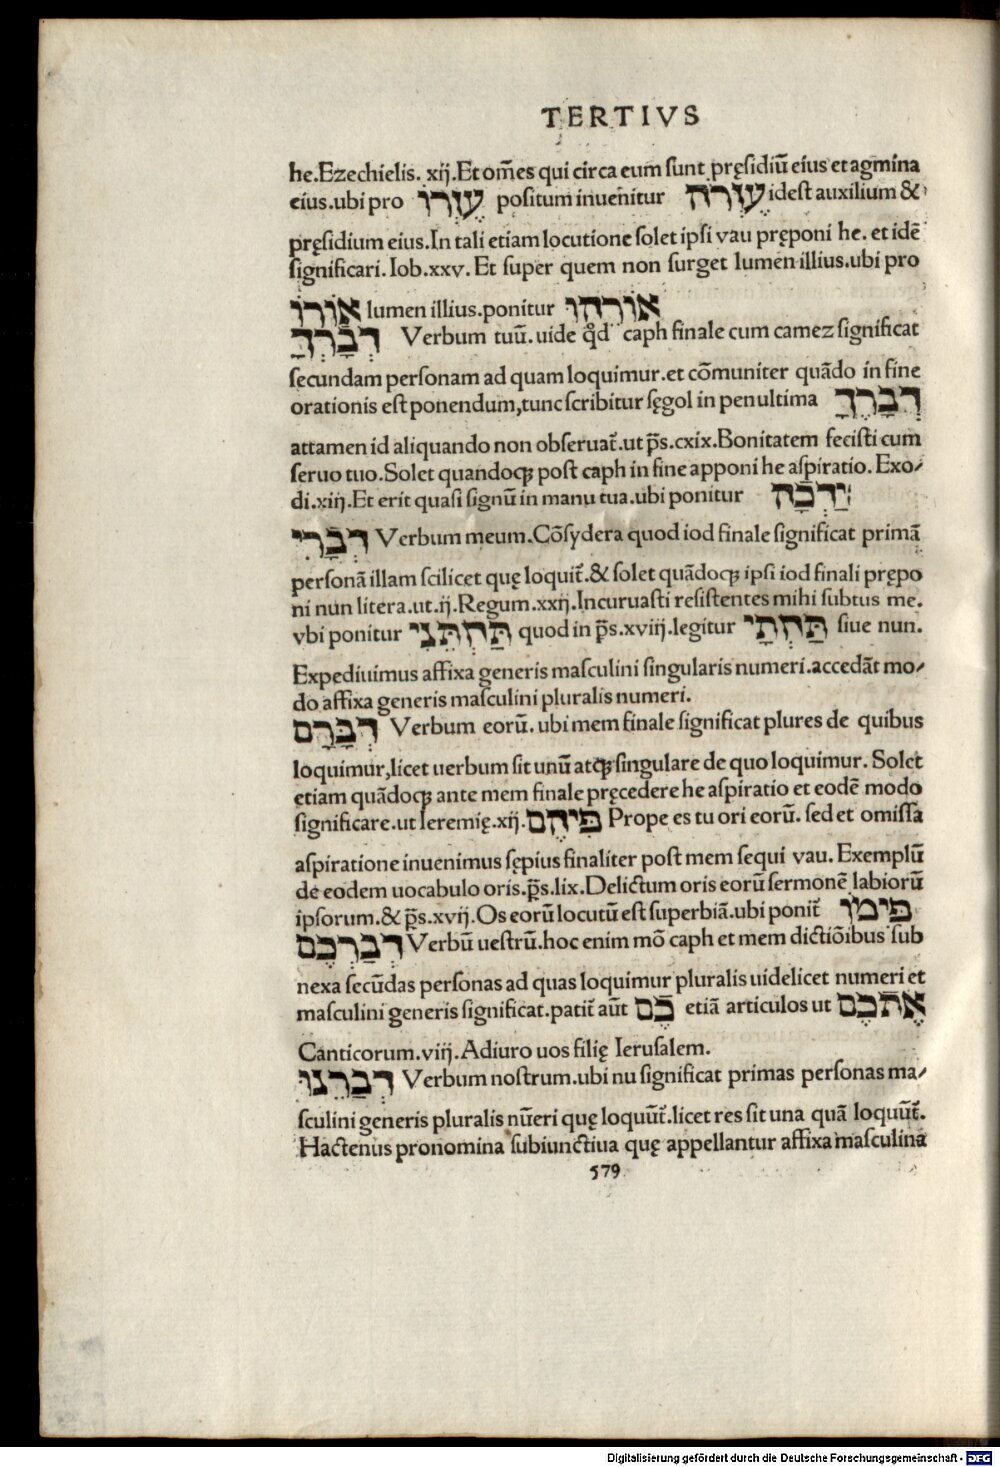 TERTIVS
he.Ezechielis. xij.Et om̄es qui circa eum sunt pręsidiū eius et agmina
eius.ubi pro עֶזְרוֹ positum inuenitur עֶזְרֹה idest auxilium &
pręsidium eius.In tali etiam locutione solet ipsi vau pręponi he. et idē
significari. Iob.xxv. Et super quem non surget lumen illius.ubi pro
אוֹרוֹ lumen illius.ponitur אוֹרֵהוּ
דְּבָרְךָ Verbum tuū. uide qd̄ caph finale cum camez significat
secundam personam ad quam loquimur.et cōmuniter quādo in fine
orationis est ponendum,tunc scribitur sęgol in penultima דְּבָרֶךָ
attamen id aliquando non obseruat̄.ut p̄s.cxix.Bonitatem fecisti cum
seruo tuo.Solet quandoqꝫ post caph in fine apponi he aspiratio. Exo⸗
di.xiij.Et erit quasi signū in manu tua.ubi ponitur יָדְכָה
דְּבָרִי Verbum meum.Cōsydera quod iod finale significat primā
personā illam scilicet quę loquit̄.& solet quādoqꝫ ipsi iod finali prępo
ni nun litera.ut.ij.Regum.xxij.Incuruasti resistentes mihi subtus me.
vbi ponitur תַּחְתֵּנִי quod in p̄s.xviij.legitur תַּחְתָּי siue nun.
Expediuimus affixa generis masculini singularis numeri.accedāt mo⸗
do affixa generis masculini pluralis numeri.
דְּבָרָם Verbum eorū. ubi mem finale significat plures de quibus
loquimur,licet uerbum sit unū atqꝫ singulare de quo loquimur. Solet
etiam quādoqꝫ ante mem finale pręcedere he aspiratio et eodē modo
significare.ut Ieremię.xij. פִּיהֶם Prope es tu ori eorū. sed et omissa
aspiratione inuenimus sępius finaliter post mem sequi vau. Exemplū
de eodem uocabulo oris.p̄s.lix.Delictum oris eorū sermonē labiorū
ipsorum.& p̄s.xvij.Os eorū locutū est superbiā.ubi ponit̄ פִּימוֹ
דְּבַרְכֶם Verbū uestrū.hoc enim mō caph et mem dictiōibus sub
nexa secūdas personas ad quas loquimur pluralis uidelicet numeri et
masculini generis significat.patit̄ aūt כֶם etiā articulos ut אֶתְכֶם
Canticorum.viij.Adiuro uos filię Ierusalem.
דְּבָרֵנוּ Verbum nostrum.ubi nu significat primas personas ma⸗
sculini generis pluralis nūeri quę loquūt̄.licet res sit una quā loquūt̄.
Hactenus pronomina subiunctiua quę appellantur affixa masculina
579
Digitalisierung gefördert durch die Deutsche Forschungsgemeinschaft - DFG